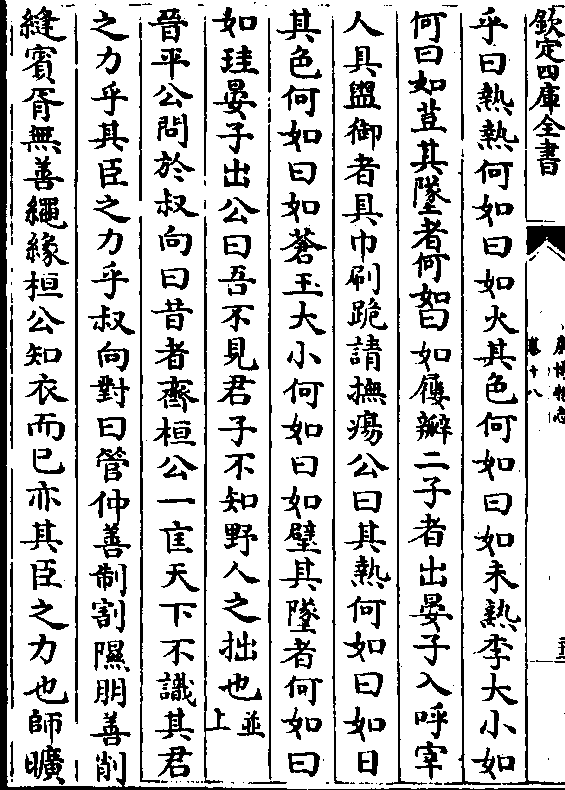 欽定四庫全書
廣博物志
卷十八
乎曰熱熱何如曰如火其色何如曰如未熟李大小如
何曰如荳其墜者何如曰如屨辨二子者出晏子入呼宰
人具盥御者具巾刷跪請撫瘍公曰其熱何如曰如日
其色何如曰如蒼玉大小何如曰如璧其墜者何如曰
如珪晏子出公曰吾不見君子不知野人之拙也並上
晉平公問於叔向曰昔者齊桓公一匡天下不識其君
之力乎其臣之力乎叔向對曰管仲善制割隰朋善削
縫賓胥無善繩緣桓公知衣而已亦其臣之力也師曠